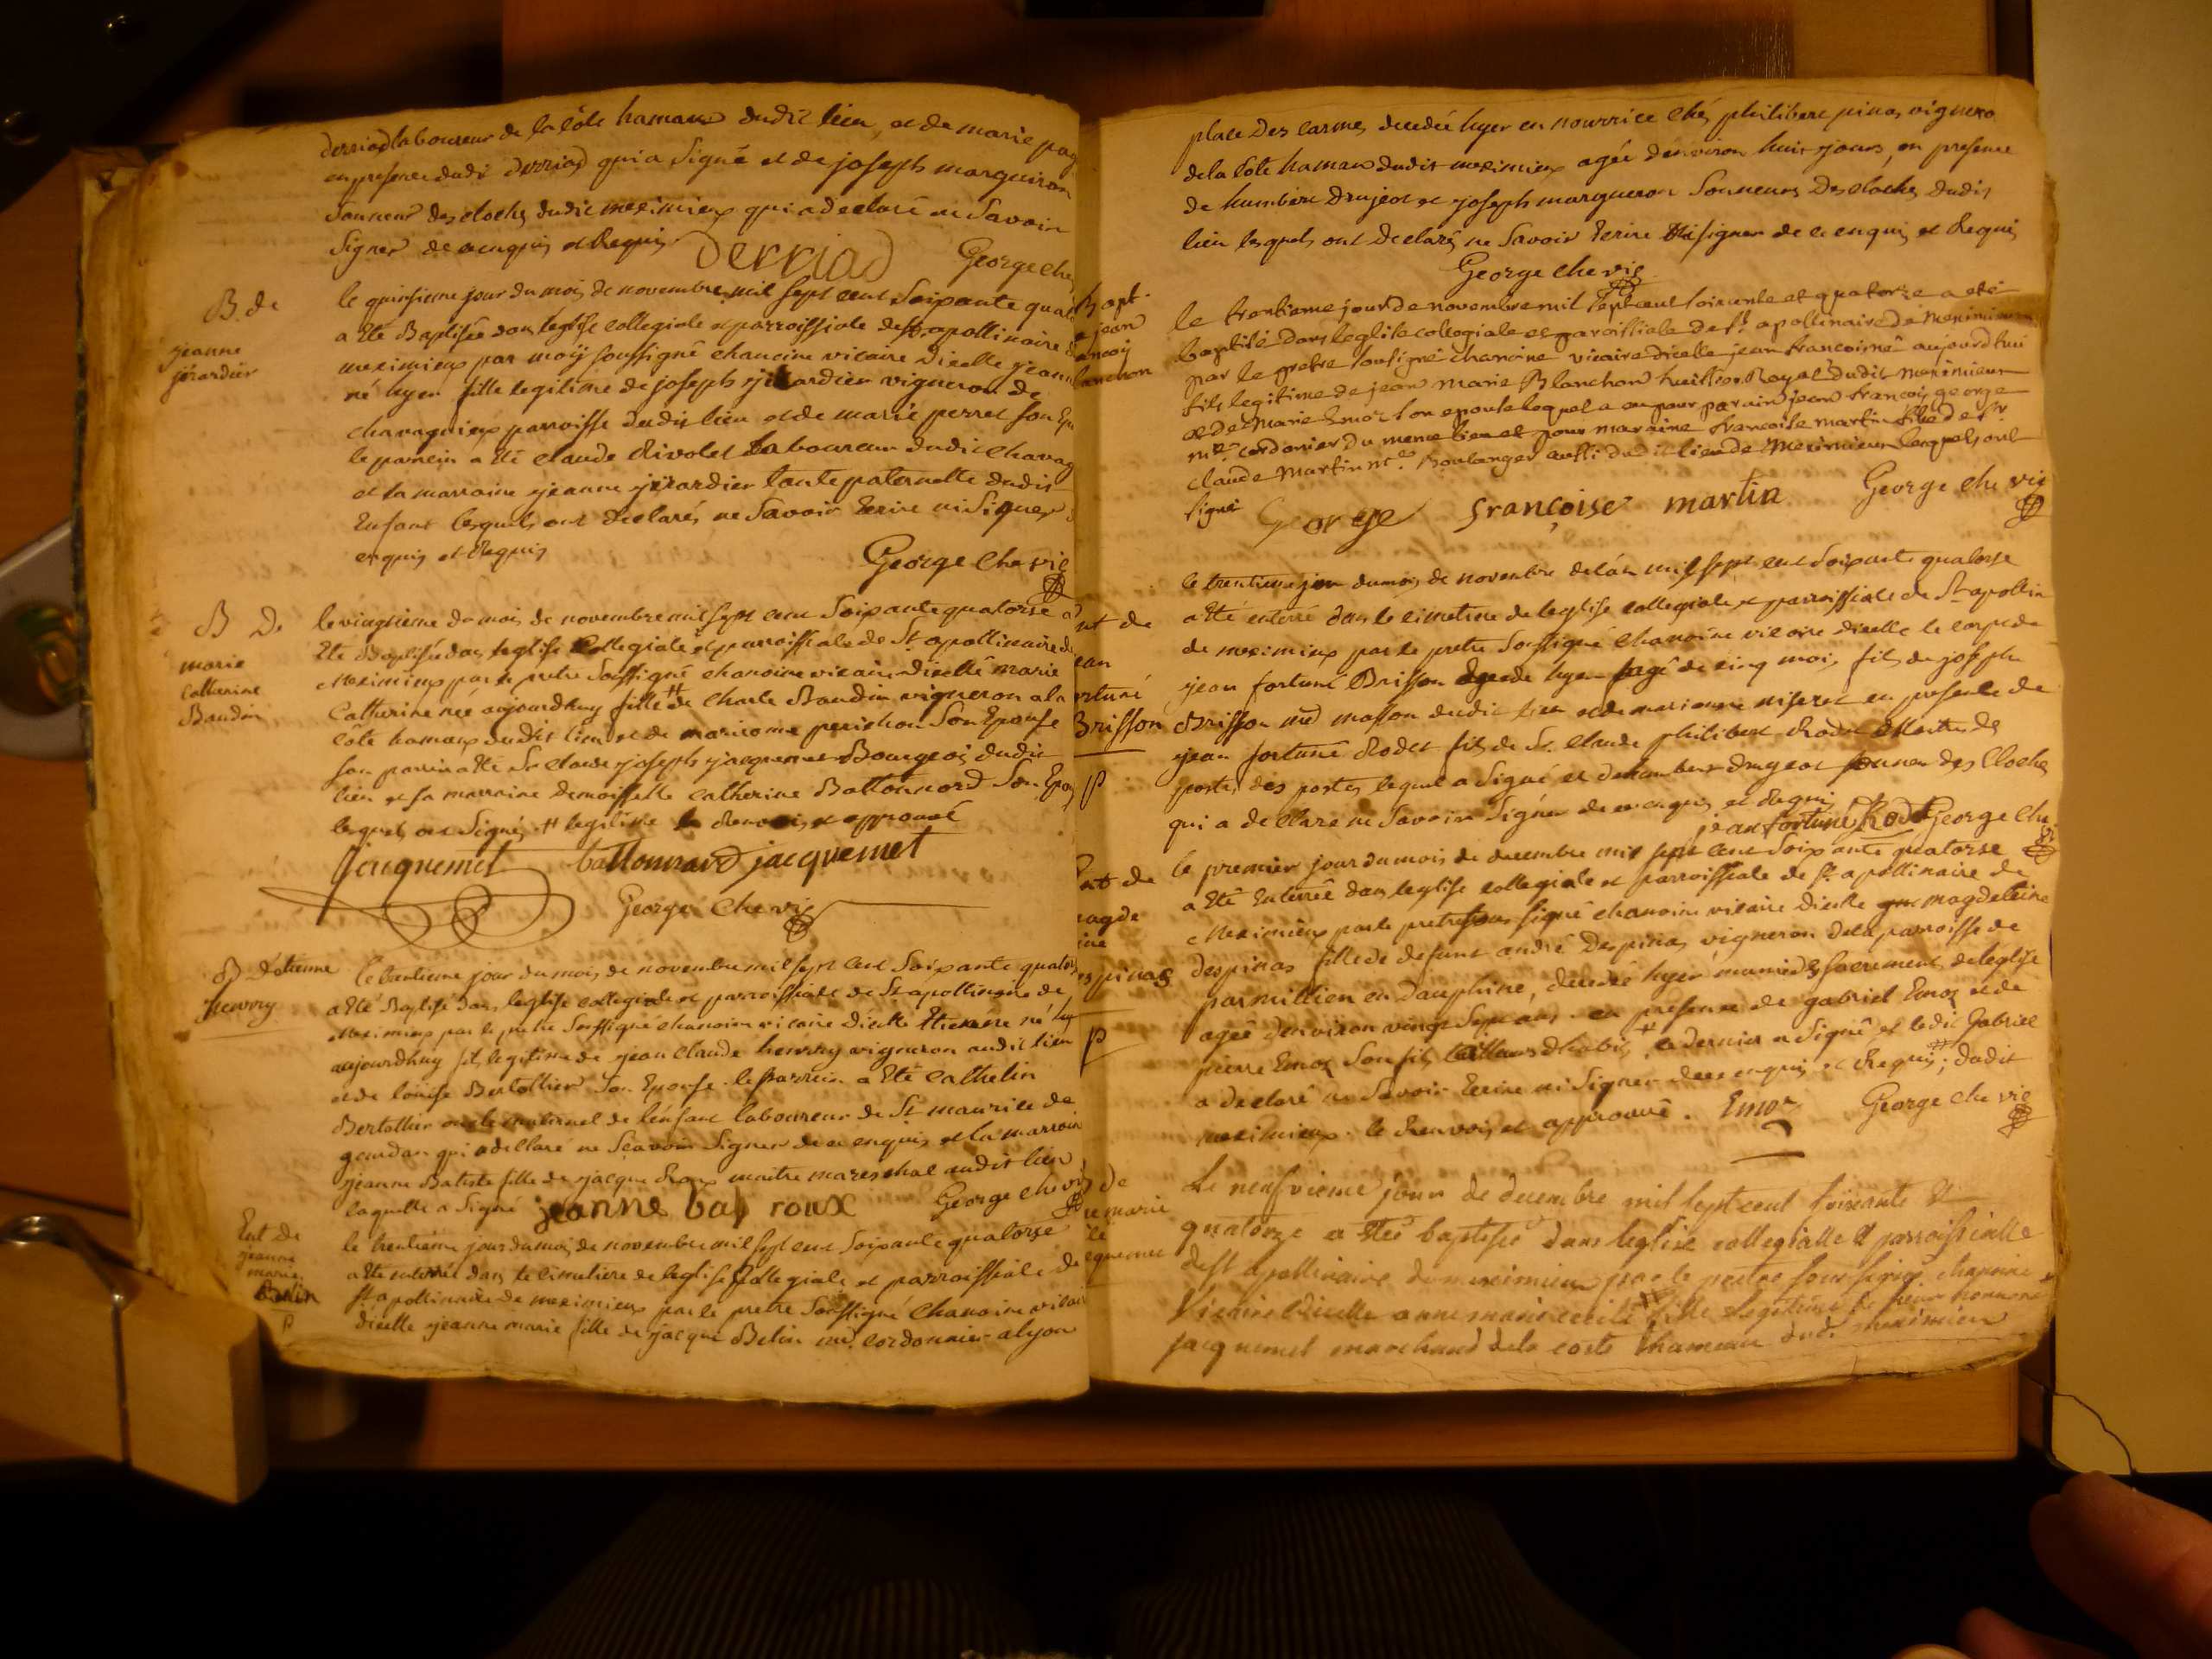 derriad laboureur de la côte hamau dudit lieu, et de marie pag
en presence dudit derriad qui a signé et de joseph margueron
sonneur des cloches dudit meximieux qui a declaré ne savoir
signer de ce enquis et requis derriad George che
B. de
jeanne
jérardier
le quinsieme jour du mois de novembre mil sept cent soixante quat
a été Baptisée dans léglise collegiale et parroissiale de st apollinaire d
meximieux par moÿ soussigné chanoine vicaire dicelle jeann
né hyer fille legitime de joseph jérardier vigneron de
chavagnieux parroisse dudit lieu et de marie perret son Epo
le parrein a été claude Rivolet laboureur dudit chavag
et la marraine jeanne jérardier tante paternelle dudit
Enfant lesquels ont declarés ne savoir Ecrire ni signer
enquis et Requis
George chevie
B De
marie
catherine
Baudin
le vingtieme du mois de novembre mil sept cent soixante quatorse a
Eté Baptisée dans leglise collegiale et parroissiale de St apollinaire de
Meximieux par le pretre soussigné chanoine vicaire dicelle marie
Catherine née aujourdhuy fille # de charle Baudin vigneron a la
cote hamaux dudit lieu et de marianne perichon son Epouse
son parrin a été Sr claude joseph jacquemet Bourgeois dudit
lieu et sa marraine demoisselle catherine Battonnard son Epou
lesquels ont signés # legitime le Renvois et approuvé
Jacquemet battonnard jacquemet
George Chevie
B. détienne
henrry
le trentieme jour du mois de novembre mil sept cent soixante quators
a été Baptisé dans leglise collegiale et parroissiale de St apollinaire de
Meximieux par le pretre soussigné chanoine vicaire dicelle Etienne né
aujourdhuy fils legitime de jean claude henrry vigneron audit lieu
et de louise Bertollier son Epouse. le parrein a Eté cathelin
Bertollier oncle maternel de lenfant laboureur de St maurice de
gourdan qui a declaré ne scavoir signer de ce enquis et la marrain
jeanne Batiste fille de jacque Roux maitre mareschal audit lieu
laquelle a signé jeanne bap roux George chevie
Ent de
jeanne
marie
Belin
p
le trentieme jour du mois de novembre mil sept cent soixante quatorze
a été enterrée dans le cimetiere de leglise collegiale et parroissiale de
St apollinaire de meximieux par le pretre soussigné chanoine vicai
dicelle jeanne marie fille de jacque Belin md. cordonnier a lyon
place des carmes decedée hyer en nourrice chés philibert pinas vignero
de la côte hamau dudit meximieux agée denviron huit jours, en presence
de humbert drujeot et joseph margueron sonneurs des cloches dudit
lieu lesquels ont declarés ne savoir Ecrire ni signer de ce enquis et Requis
George chevie
Bapt.
e jean
ancois
lanchon
le trentieme jour de novembre mil sept cent soixante et quatorze a eté
baptisé dans leglise collegiale et paroissiale de St apollinaire de Meximieux
par le pretre soussigné chanoine vicaire dicelle jean francois né aujourdhui
fils legitime de jean marie Blanchon huissier Royal dudit Meximieux
et de Marie Emoz son epouse lequel a eu pour parain jean francois george
me. cordonier du meme lieu et pour marraine francoise martin fille de sr
claude Martin me. Boulanger aussi dudit lieu de Meximieux lesquels ont
signé George françoise martin George chevie
nt de
ean
rtuné
Brisson
p
le trentieme jour du mois de novembre de lan mil sept cent soixante quatorse
a été enterré dans le cimetiere de leglise collegiale et parroissiale de St apollin
de meximieux par le pretre soussigné chanoine vicaire dicelle le corps de
jean fortuné Brisson decede hyer agé de cinq mois fils de joseph
Brisson md masson dudit lieu et de marianne miseret en presence de
jean fortuné Rodet fils de Sr. claude philibert Rodet Maitre de
postes des postes lequel a signé et de humbert drugeot sonneur des cloches
qui a declaré ne savoir signer de ce enquis et requis
jean fortuné Rodet George che
nt de
magde
ine
espinas
p
le premier jour du mois de decembre mil sept cent soixante quatorse
a Eté Enterrée dans leglise collegiale et parroissiale de St. apollinaire de
Meximieux par le pretre sous signé chanoine vicaire dicelle magdeleine
despinas fille de defunt andré despinas vigneron de la parroisse de
parmillieu en dauphiné, decedée hyer munie des sacrements de leglise
agée denviron vingt sept ans. en presence de gabriel Emoz et de
pierre Emoz son fils tailleurs dhabits # ce dernier a signé, et ledit Gabriel
a declaré ne savoir Ecrire ni signer de ce enquis et Requis; # dudit
meximieux. le Renvois et approuvé. Emoz George chevie
de
e marie
cile
quemet
Le neufvieme jour de decembre mil sept cent soixante &
quatorze a été baptisée dans leglise collegialle & parroissialle
de st apollinaire de meximieux par le pretre soussigné chanoine
Vicaire dicelle anne marie cecile # fille legitime de sieur honnoré
jacquemet marchand de la coste hameau dudt meximieu